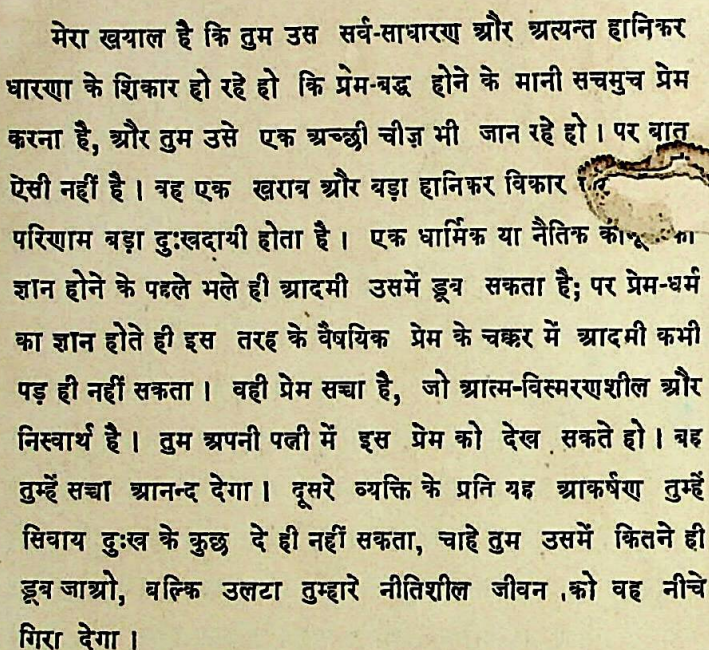 मेरा खयाल है कि तुम उस सर्व-साधारण और अत्यन्त हानिकर
धारणा के शिकार हो रहे हो कि प्रेम-बद्ध होने के मानी सचमुच प्रेम
करना है, और तुम उसे एक अच्छी चीज़ भी जान रहे हो । पर बात
ऐसी नहीं है । वह एक खराब और बड़ा हानिकर विकार
परिणाम बड़ा दुःखदायी होता है । एक धार्मिक या नैतिक
ज्ञान होने के पहले भले ही आदमी उसमें डूब सकता है; पर प्रेम-धर्म
का ज्ञान होते ही इस तरह के वैषयिक प्रेम के चक्कर में आदमी कभी
पड़ ही नहीं सकता । वही प्रेम सच्चा है, जो आत्म-विस्मरणशील और
निस्वार्थ है । तुम अपनी पत्नी में इस प्रेम को देख सकते हो । वह
तुम्हें सच्चा आनन्द देगा । दूसरे व्यक्ति के प्रति यह आकर्षण तुम्हें
सिवाय दुःख के कुछ दे ही नहीं सकता, चाहे तुम उसमें कितने ही
डूब जाओ, बल्कि उलटा तुम्हारे नीतिशील जीवन को वह नीचे
गिरा देगा ।